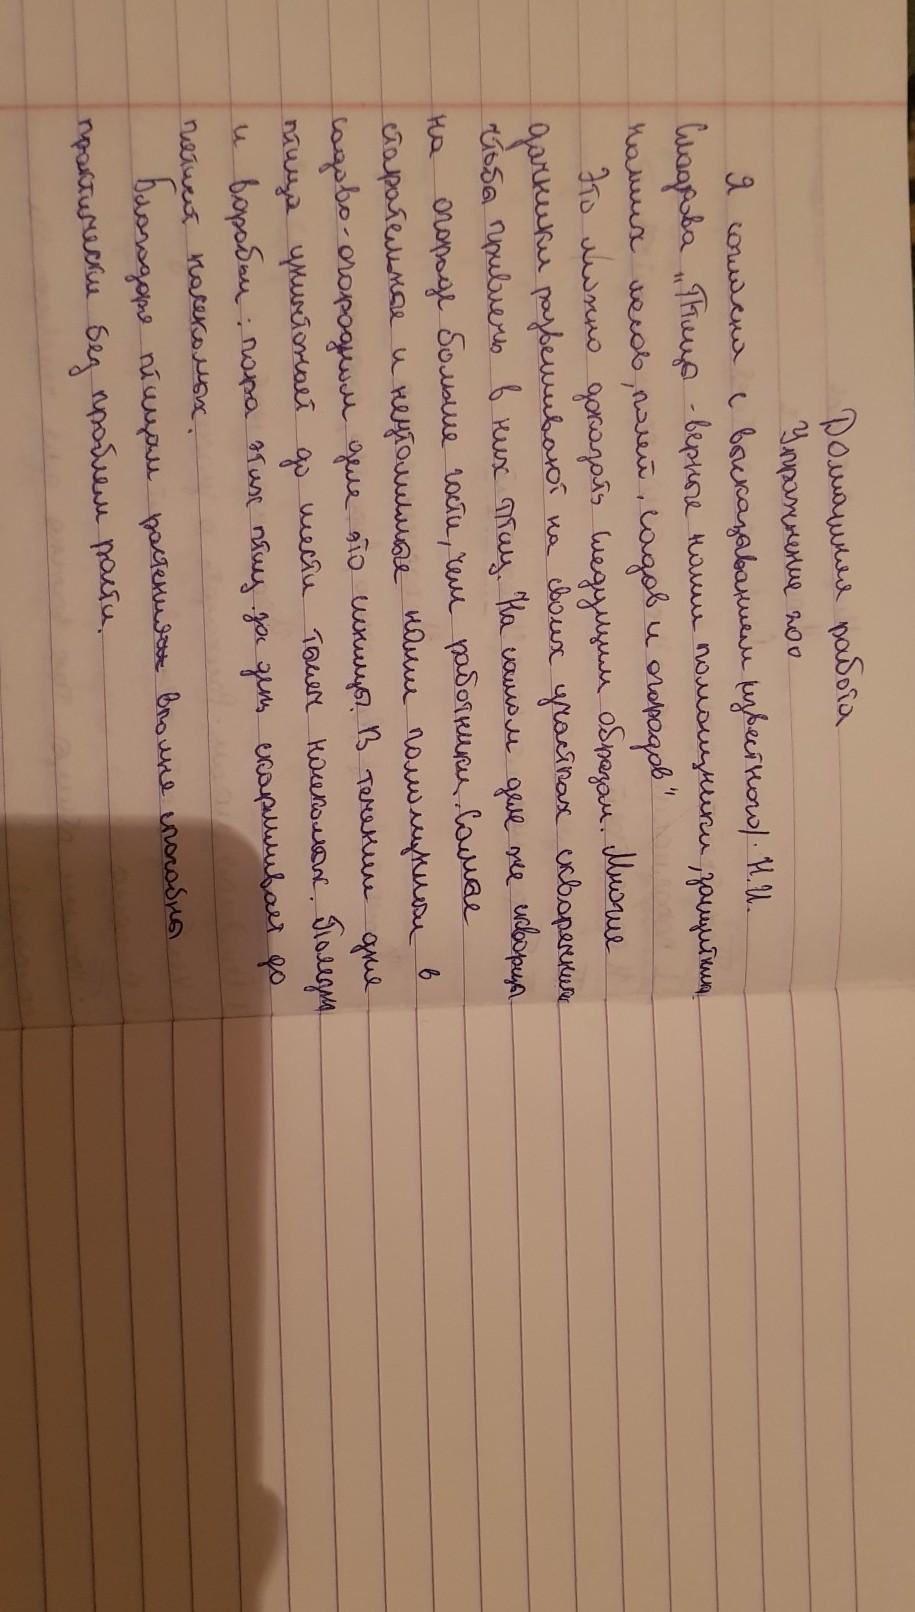 Домашняя работа
Упражнение 200
Я согласна с высказыванием (известного). Н.И.
Сладкова „Птицы - верные наши помощники, защитники
наших лесов, полей, садов и огородов"
Это можно доказать следущим образом. Многие
дачники развешивают на своих участках скворечники
чтобы привлечь в них птиц. На самом деле же скворцы
на огороде больше гости, чем работники. Самые
старательные и неутомимые наши помощники в
садово-огородным деле это синицы. В течении дня
птица уничтожает до шести тысяч насекомых. Полезны
и воробьи: пара этих птиц за день скармливает до
насекомых.
Благодаря птицам растения вполне способны
практически без проблем расти.